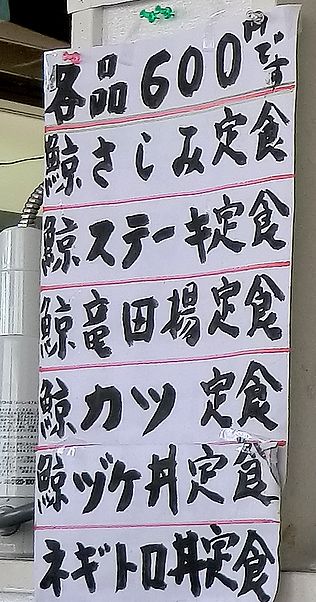 各品600円です
鯨さしみ定食
鯨ステーキ定食
鯨竜田揚定食
鯨カツ定食
鯨ヅケ丼定食
ネギトロ丼定食